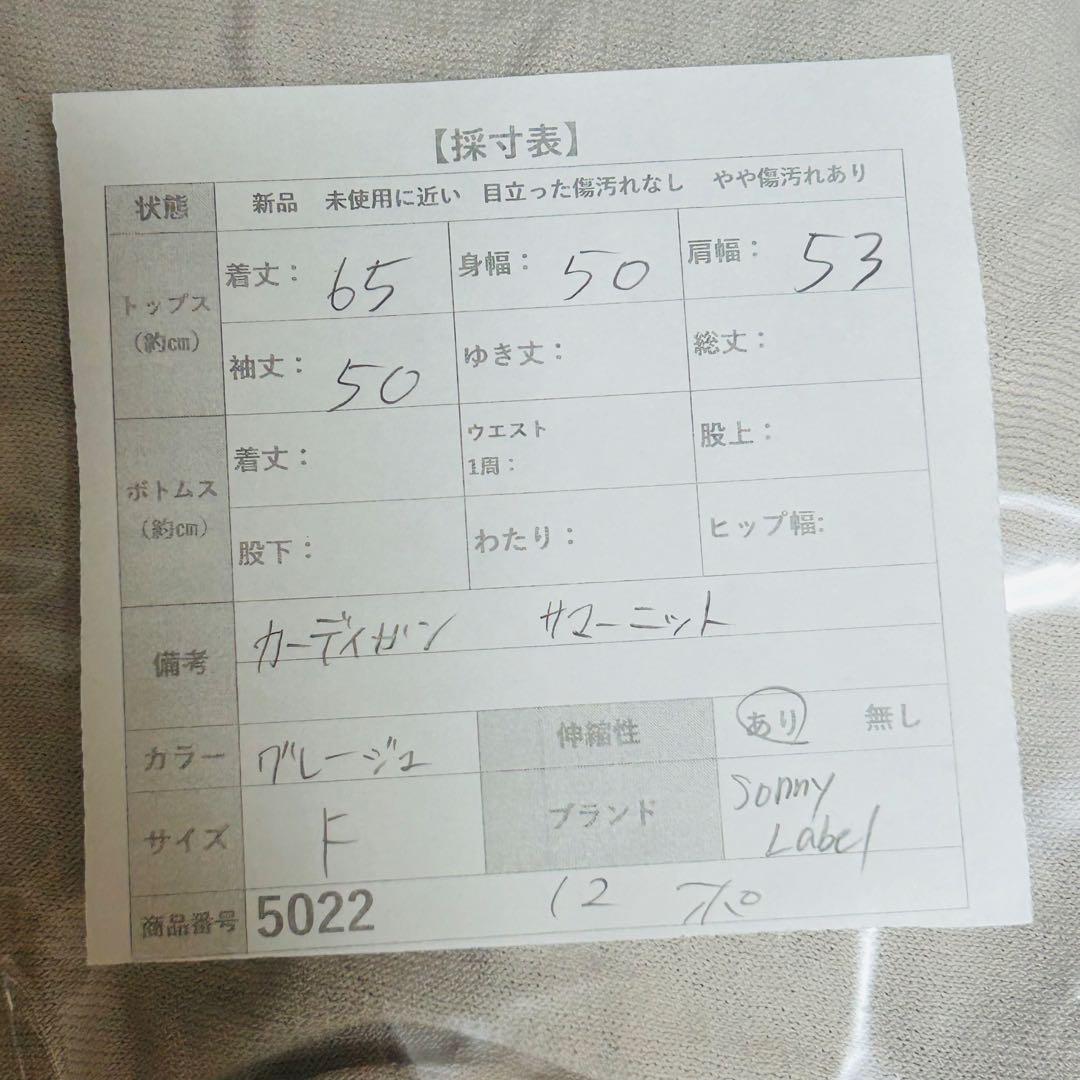 【採寸表】
状態 新品 未使用に近い 目立った傷汚れなし やや傷汚れあり
トップス
(約cm)
着丈： 65 身幅： 50 肩幅： 53
袖丈： 50 ゆき丈： 総丈：
ボトムス
(約cm)
着丈： ウエスト
1周： 股上：
股下： わたり： ヒップ幅:
備考 カーディガン サマーニット
カラー グレージュ 伸縮性 あり 無し
サイズ F ブランド Sonny
Label
商品番号 5022 12